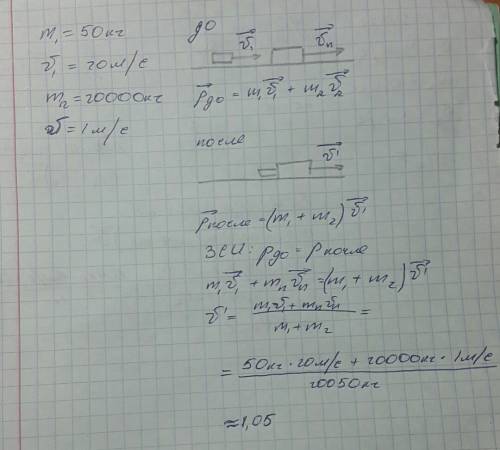 m₁ = 50кг
v₁ = 20м/с
m₂ = 20000кг
v = 1м/с
до
v₁ v₂
p⃗до = m₁v⃗₁ + m₂v⃗₂
после
v⃗'
p⃗после = (m₁ + m₂)v⃗'
ЗСИ: pдо = pпосле
m₁v⃗₁ + m₂v⃗₂ = (m₁ + m₂)v⃗'
v' = (m₁v₁ + m₂v₂) / (m₁ + m₂) =
= (50кг · 20м/с + 20000кг · 1м/с) / 20050кг
≈ 1,05